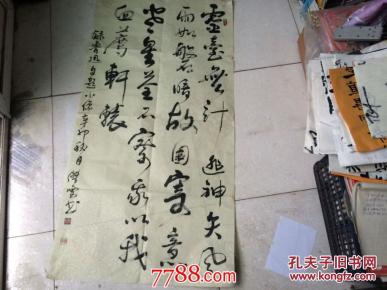 靈臺無計逃神矢風
雨如磐暗故園寄意
寒星荃不察我以我
血薦軒轅
錄魯迅自題小像辛卯秋月
7788.com
孔夫子旧书网